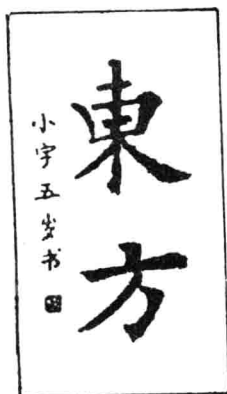 東方
小宇五岁书